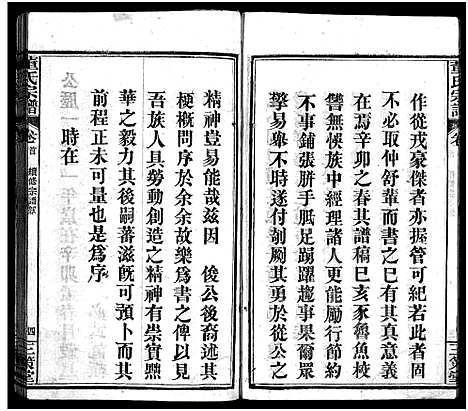 董氏宗譜
作從戎豪傑者亦握管可紀若此者
不可以更僕仲舒輩而已其真意義
在焉辛卯之春其譜稿巳亥豕魯魚校
讐無悞族中經理諸人更能勵行節約
不事鋪張胼手胝足踴躍趨事果爾眾
擎易舉不時遂付剞劂其勇於從公之
精神豈易能哉滋因 俊公後將其
梗概問序於余余故樂為書之俾以見
吾族人具勞動創造之精神有崇實黜
華之毅力其後嗣蕃滋旣可預卜而其
前程正未可量也是為序
公歷一
時在
董氏宗譜
卷首
續修宗譜敘
四
三策堂